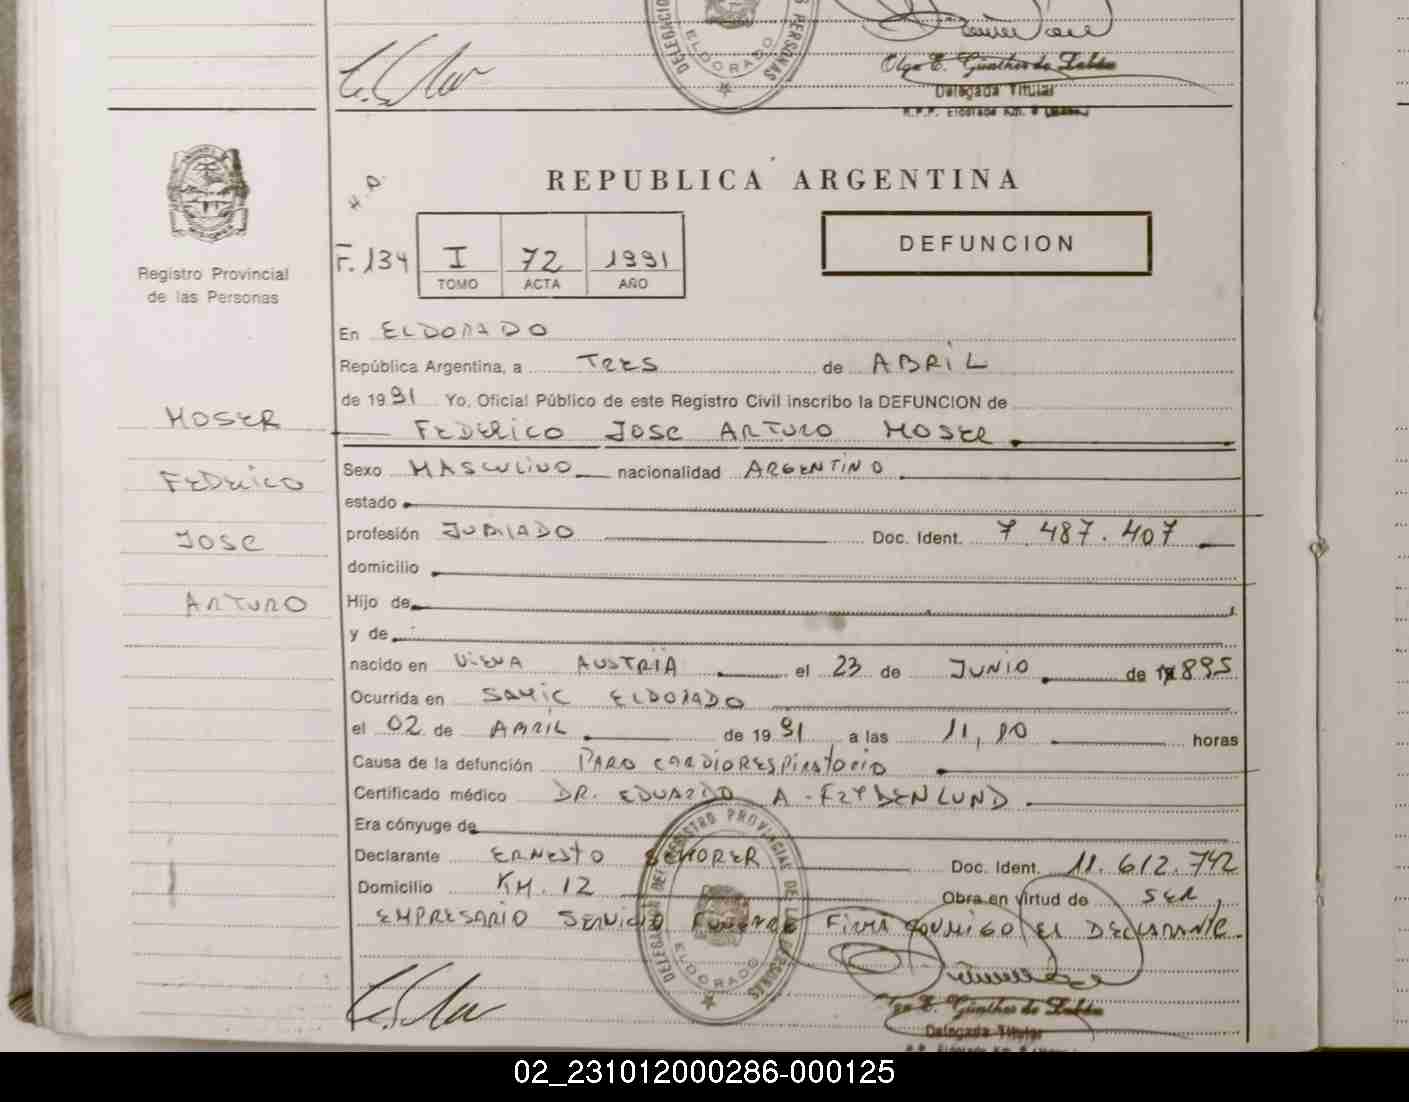 DELEGACION
PERSONAS
ELDORADO
Olga E. Günther de Labán
Delegada Titular
R.P.P. Eldorado Km. 9 (Mnes.)
REPUBLICA ARGENTINA
H.D.
F. 134
I 72 1991
TOMO ACTA AÑO
DEFUNCION
Registro Provincial
de las Personas
MOSER
FEDERICO
JOSE
ARTURO
En ELDORADO
República Argentina, a TRES de ABRIL
de 1991 Yo, Oficial Público de este Registro Civil inscribo la DEFUNCION de
FEDERICO JOSE ARTURO MOSER
Sexo MASCULINO nacionalidad ARGENTINO
estado
profesión JUBILADO Doc. Ident. 7.487.407
domicilio
Hijo de
y de
nacido en VIENA AUSTRIA el 23 de JUNIO de 1895
Ocurrida en SAMIC ELDORADO
el 02 de ABRIL de 1991 a las 11,10 horas
Causa de la defunción PARO CARDIORESPIRATORIO
Certificado médico DR. EDUARDO A. FRYDENLUND
Era cónyuge de
Declarante ERNESTO SCHORER Doc. Ident. 11.612.742
Domicilio KM. 12 Obra en virtud de SER,
EMPRESARIO SERVICIO FUNEBRE FIRMA CONMIGO EL DECLARANTE.
DELEGACION DEL REGISTRO PROVINCIAL DE LAS PERSONAS
ELDORADO
Olga E. Günther de Labán
Delegada Titular
02_231012000286-000125